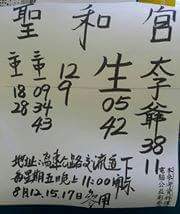 聖和宮
太子爺
38
11
生
05
42
12
9
童
09
34
43
童
18
28
地址:高速公路交流道下
每星期五晚上11:00開示
8月12.15.17日參用